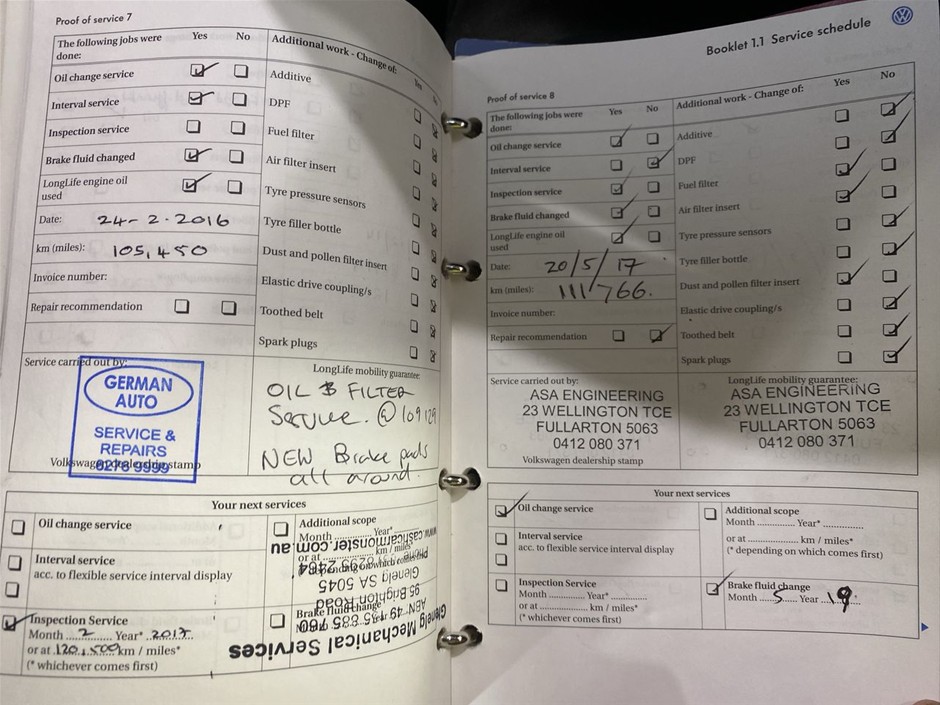 Proof of service 7
The following jobs were done: Yes No
Additional work - Change of: Yes No
Oil change service
Interval service
Inspection service
Brake fluid changed
LongLife engine oil used
Date: 24-2-2016
km (miles): 105,450
Invoice number:
Repair recommendation
Additive
DPF
Fuel filter
Air filter insert
Tyre pressure sensors
Tyre filler bottle
Dust and pollen filter insert
Elastic drive coupling/s
Toothed belt
Spark plugs
Service carried out by:
GERMAN
AUTO
SERVICE &
REPAIRS
Volkswagen dealership stamp
LongLife mobility guarantee
OIL & FILTER
Service. @ 109 129
NEW Brake pads
all around.
Your next services
Oil change service
Interval service
acc. to flexible service interval display
Inspection Service
Month 2 Year* 2017
or at 120,500 km / miles*
(* whichever comes first)
Additional scope
Month Year*
or at km / miles*
Brake fluid change
Glenelg Mechanical Services
95 Brighton Road
Glenelg SA 5045
www.cashcarmonster.com.au
Booklet 1.1 Service schedule
Proof of service 8
The following jobs were done: Yes No
Additional work - Change of: Yes No
Oil change service
Interval service
Inspection service
Brake fluid changed
LongLife engine oil used
Date: 20/5/17
km (miles): 111/766.
Invoice number:
Repair recommendation
Additive
DPF
Fuel filter
Air filter insert
Tyre pressure sensors
Tyre filler bottle
Dust and pollen filter insert
Elastic drive coupling/s
Toothed belt
Spark plugs
Service carried out by:
ASA ENGINEERING
23 WELLINGTON TCE
FULLARTON 5063
0412 080 371
Volkswagen dealership stamp
LongLife mobility guarantee:
ASA ENGINEERING
23 WELLINGTON TCE
FULLARTON 5063
0412 080 371
Your next services
Oil change service
Interval service
acc. to flexible service interval display
Inspection Service
Month Year*
or at km / miles*
(* whichever comes first)
Additional scope
Month Year*
or at km / miles*
(* depending on which comes first)
Brake fluid change
Month 5 Year 19